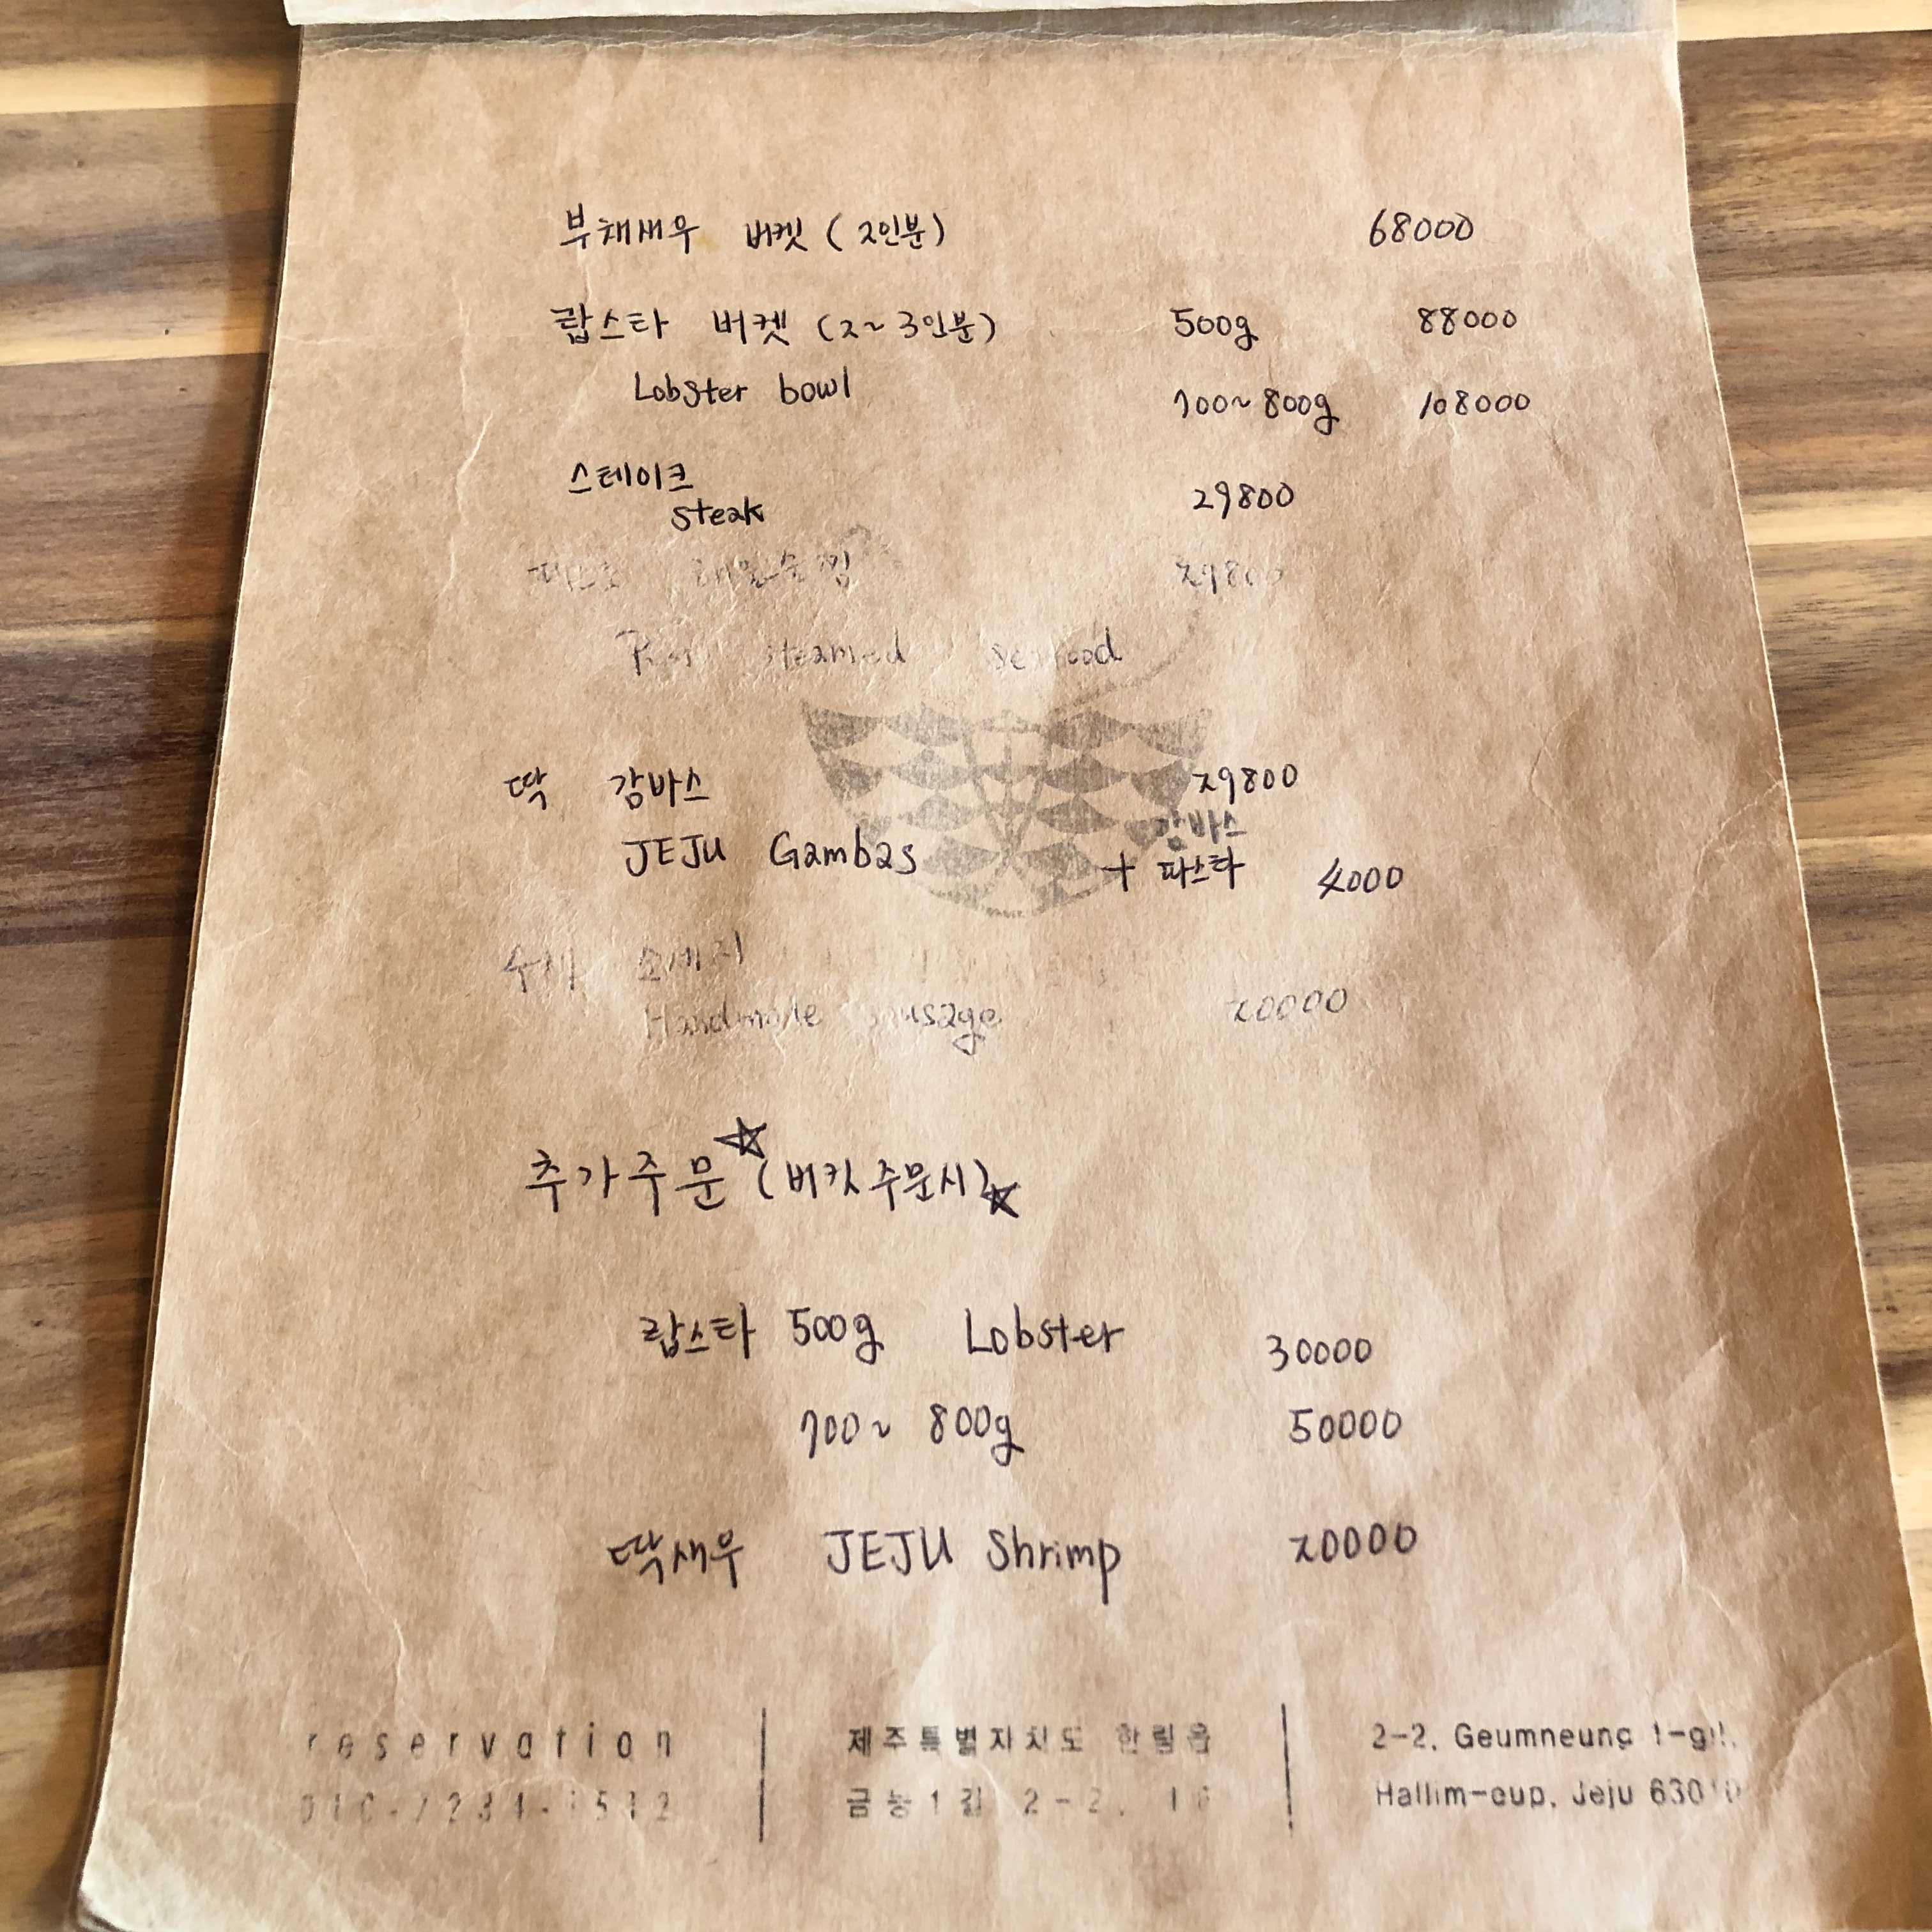 부채새우 버켓 (2인분) 68000
랍스타 버켓 (2~3인분) 500g 88000
Lobster bowl 700~800g 108000
스테이크
steak 29800
해물술찜
steamed seafood
딱 감바스 29800
JEJU Gambas
감바스
+ 파스타 4000
수제 소세지
Handmade Sausage 20000
추가주문☆(버킷주문시)☆
랍스타 500g Lobster 30000
700~ 800g 50000
딱새우 JEJU Shrimp 20000
reservation
제주특별자치도 한림읍
금능1길 2-2,
2-2, Geumneung 1-gil,
Hallim-eup, Jeju